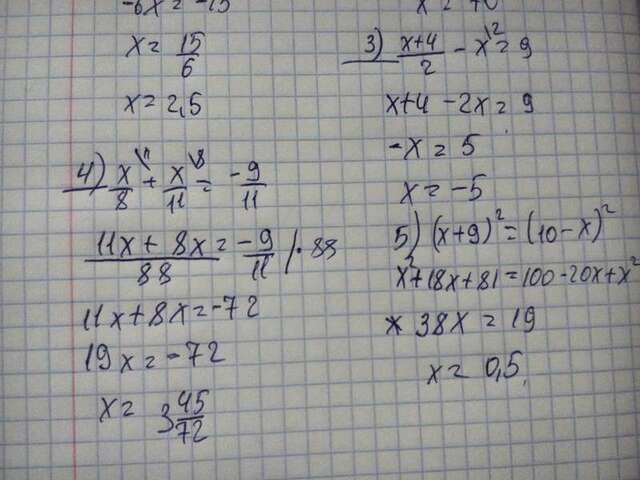 -6x = -15
x = 15/6
x = 2,5
4) x/8 \11 + x/11 \8 = -9/11
11x + 8x/88 = -9/11 | · 88
11x + 8x = -72
19x = -72
x = 3 45/72
x = 70
3) x+4/2 - x\2 = 9
x+4 - 2x = 9
-x = 5
x = -5
5) (x+9)² = (10-x)²
x²+18x+81 = 100-20x+x²
38x = 19
x = 0,5